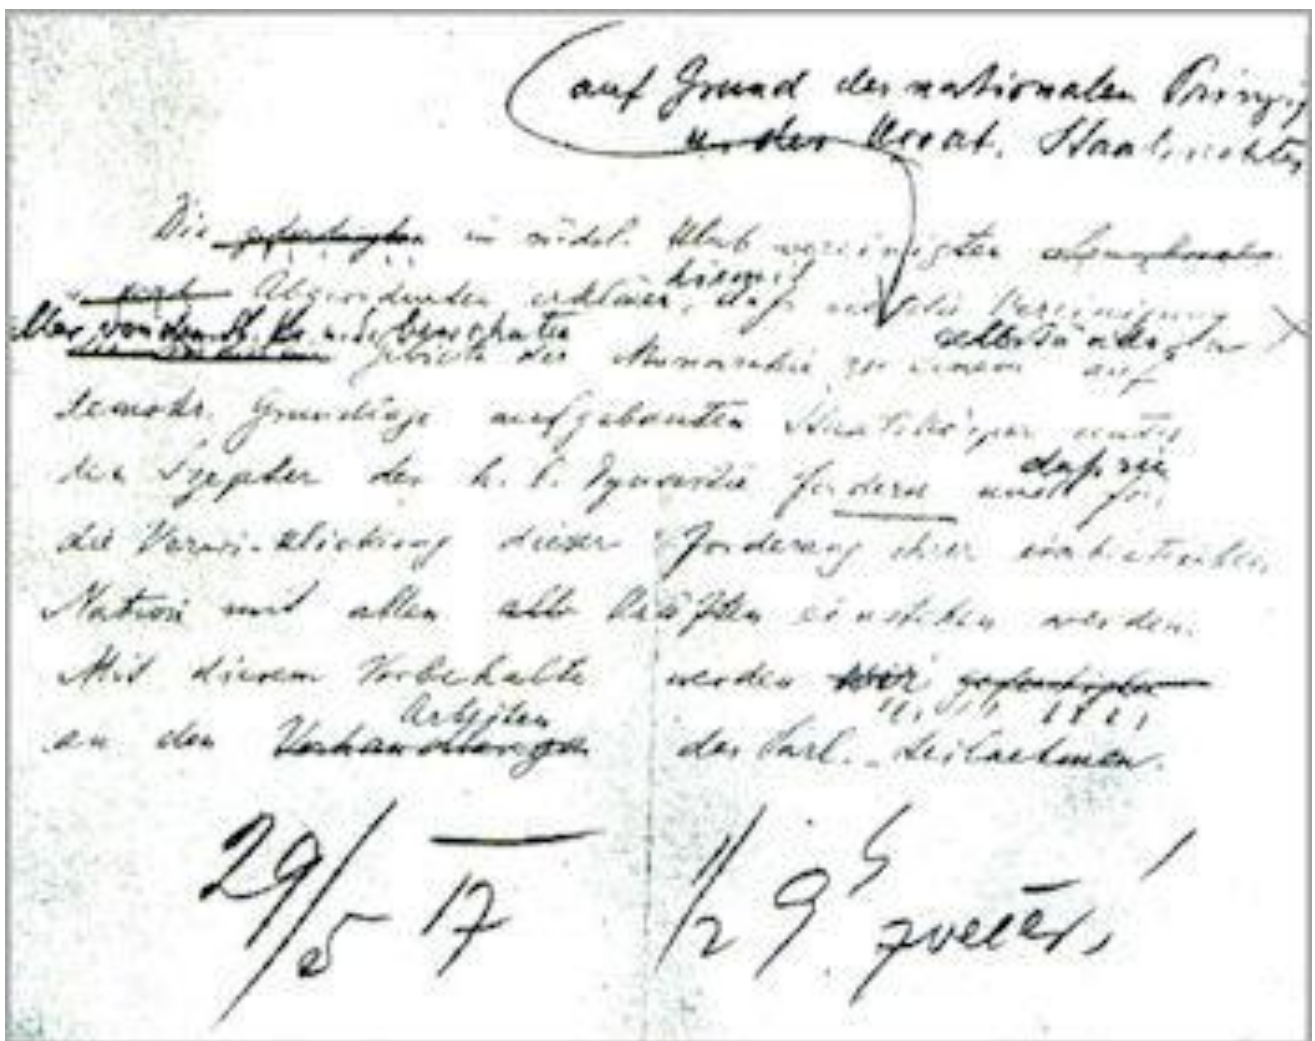 auf Grund des nationalen Prinzips
u. des kroat. Staatsrechtes
Die gefertigten im südsl. Klub vereinigten
Abgeordneten erklären, hiemit daß die Vereinigung
aller von den Sl. Kr. u. S. bewohnten selbständigen
Gebiete der Monarchie zu einem auf
demokr. Grundlage aufgebauten Staatskörper unter
dem Szepter der h. l. Dynastie fordern und daß sie für
die Verwirklichung dieser Forderung ihrer einheitlichen
Nation mit allen Kräften einstehen werden.
Mit diesem Vorbehalte werden wir gefertigten
Arbeiten
an den Verhandlungen des Parl. teilnehmen.
29/5 17 1/2 9 h zvečer